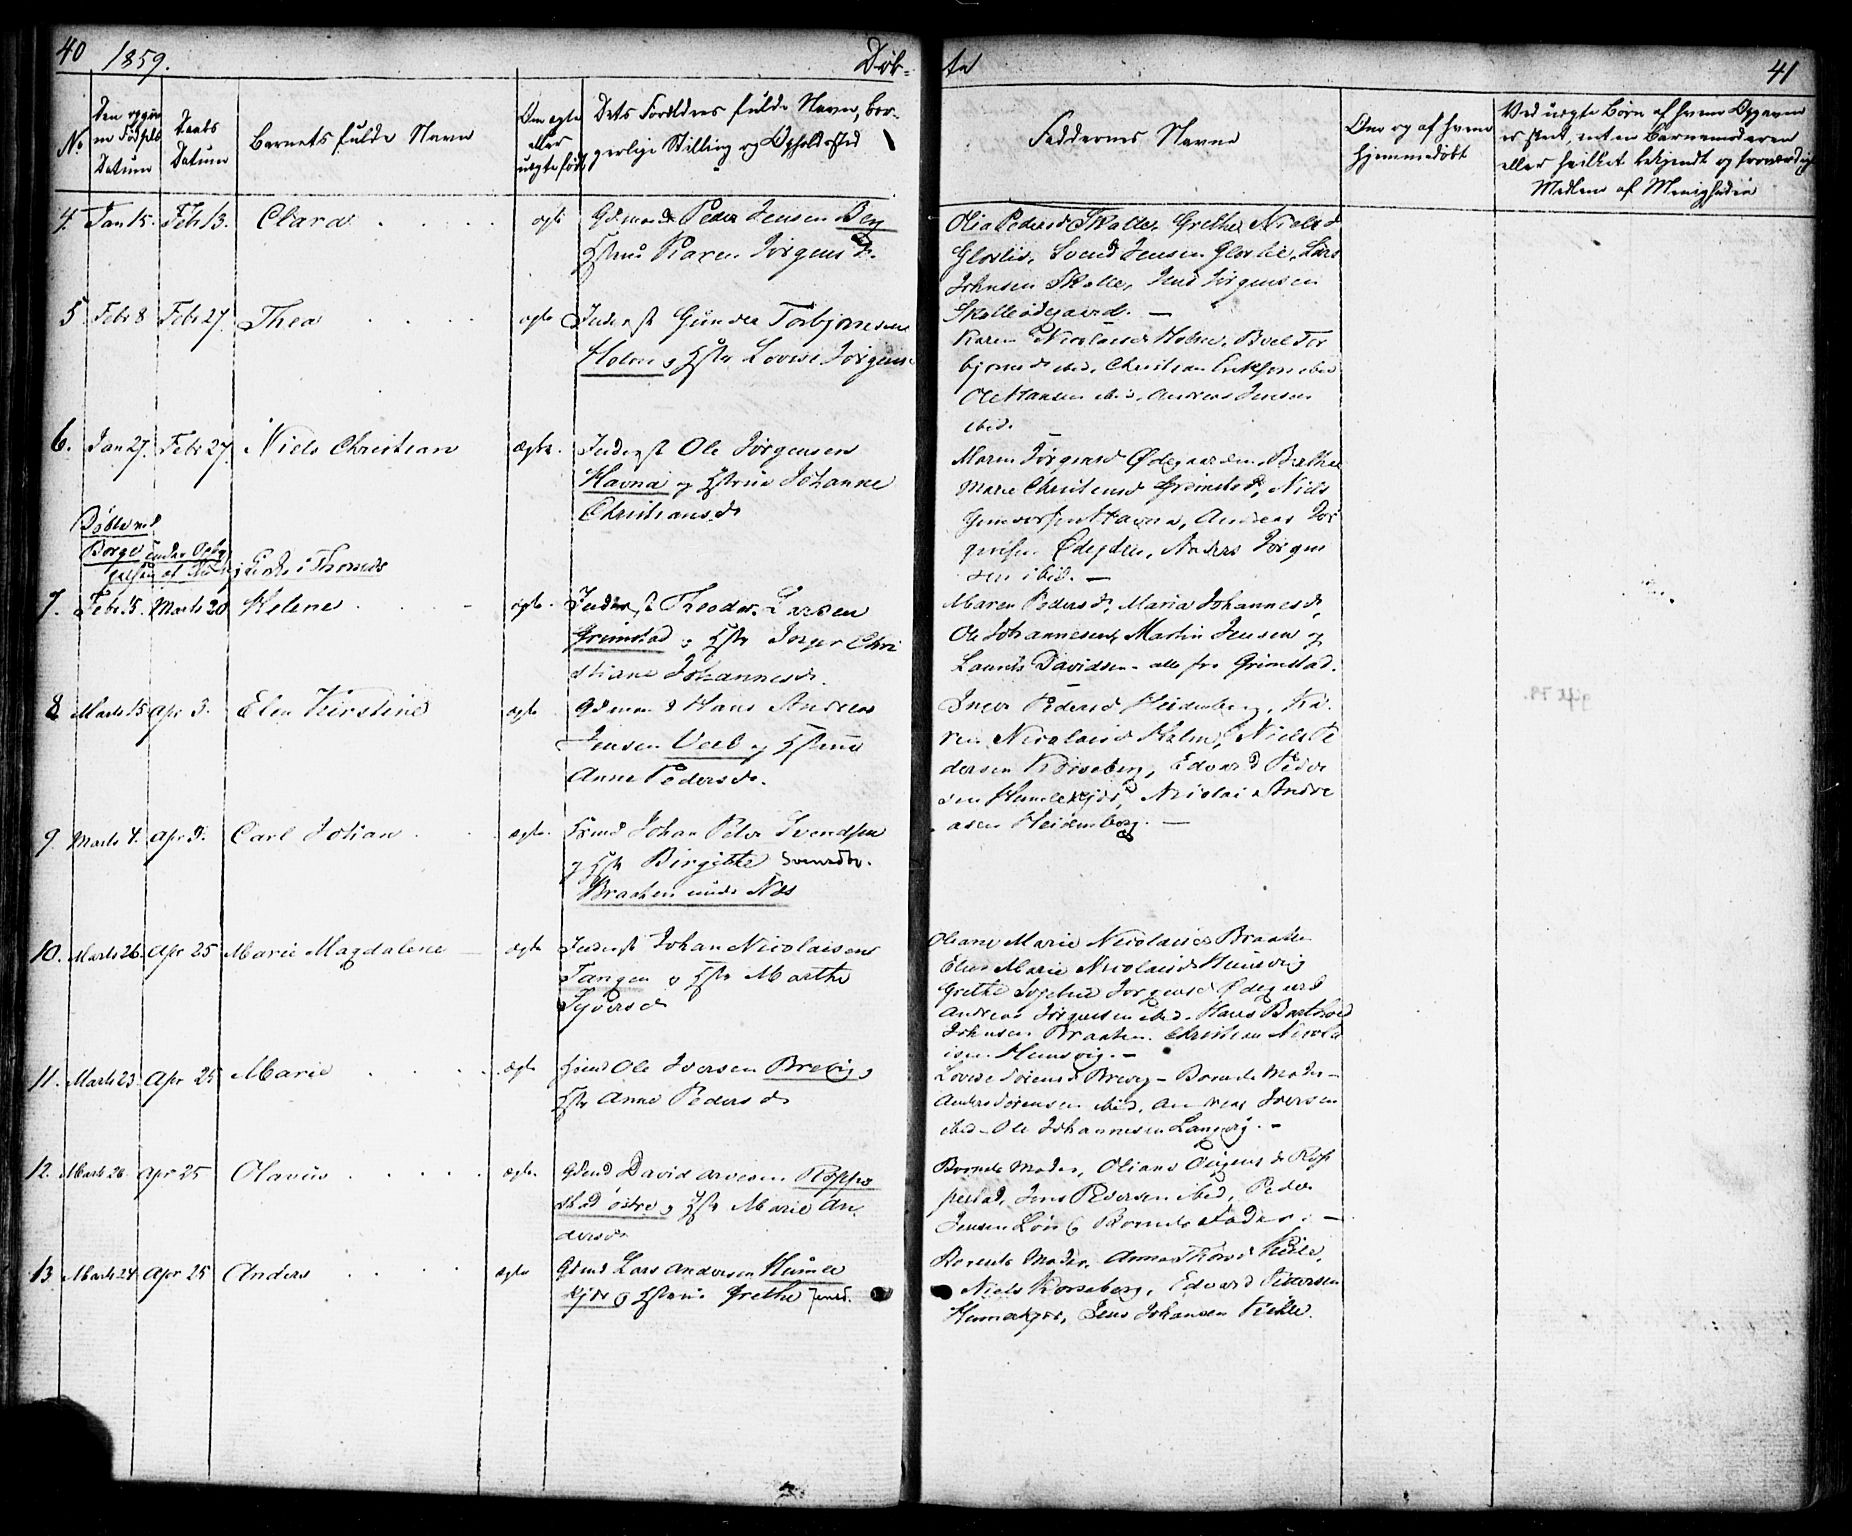 40 1859. Døb-
te 41
No
Den opgivne Fødsels Datum
Daabs Datum
Barnets fulde Navn
Om ægte eller uægte født
Dets Forældres fulde Navn, borgerlige Stilling og Opholdssted
Faddernes Navne
Om og af hvem hjemmedøbt
Ved uægte Børn af hvem Opgaven er skeet, enten Barnemoderen eller hvilket bekjendt og troværdigt Medlem af Menigheden
4. Jan 15. Febr 13. Clara ægte Gdmand Peder Jensen Berg
Hstru Karen Jørgensd.
Olia Pedersd Skolle, Grethe Nielsd
Glorlie, Svend Jensen Glorlie, Lars
Johnsen Skolle, Jens Jørgensen
Skolleødegaard. —
5 Febr 8 Febr 27. Thea ægte Inderst Gunder Torbjørnsen
Holm og Hstr Lovise Jørgens
Karen Nicolaisd Holm, Boel Tor
bjørnsd ibid, Christian Eriksen ibid
Ole Hansen ibid, Andreas Jensen
ibid.
6. Jan 27. Febr 27. Niels Christian ægte Inderst Ole Jørgensen
Havna og Hstrue Johanne
Christiansd.
Maren Jørgensd Ødegaarden, Berthe
Marie Christensd Grimstad, Niels
Havna, Andreas Jør
gensen Ødegden, Anders Jørgen
sen ibid. —
Døbte ved
Borge under Opbyg
gelsen af Kirken i Thomde
7. Febr 5. Marts 20 Helene ægte Inderst Theodor Larsen
Grimstad og Hstr Inger Chri
stiane Johannesd.
Maren Pedersd, Maria Johannesd,
Ole Johannesen, Martin Jensen og
Laurits Davidsen - alle fra Grimstad.
8 Marts 15 Apr 3. Elen Kirstine ægte Gdmand Hans Andreas
Jensen Veel og Hstrue
Anne Pedersd.
Inger Pedersd Heidenberg, Ka
ren Nicolaisd Holm, Niels Pe
dersen Korseberg, Edvard Peder
sen Humlekjær, Nicolai Andre
asen Heidenberg. —
9. Marts 4. Apr 3. Carl Johan ægte Hmd Johan Peter Svendsen
og Hstr Birgitte Svendsd.
Braaten under Næs
10. Marts 26. Apr 25 Marie Magdalene ægte Inderst Johan Nicolaisen
Tangen og Hstr Marthe
Syversd
Oliane Marie Nicolaisd Braaten
Elen Marie Nicolaisd Hunsvig
Grethe Jørgensd Ødegard
Andreas Jørgensen ibid. Hans Barthold
Johnsen Braaten. Christian Nicola
isen Hunsvig. —
11. Marts 23. Apr 25 Marie ægte Hmd Ole Iversen Brevig og
Hstr Anne Pedersd
Lovise Sørensd Brevig - Barnets Moder -
Anders Sørensen ibid, Andreas Iversen
ibid - Ole Johannesen Langvig. -
12. Marts 26 Apr 25 Olavus ægte Gdmd David Arvesen Roppe
stad østre og Hstr Marie An
dersd
Barnets Moder, Oliane Rop
pestad, Jens Pedersen ibid, Peder
Jensen Barnets Fader. —
13 Marts 24 Apr 25 Anders ægte Gdmd Lars Andersen Humle
kjær og Hstrue Grethe Jensd.
Barnets Moder, Anne Kihle,
Niels Korseberg, Edvard Pedersen
Humlekjær, Jens Johansen Kihle.